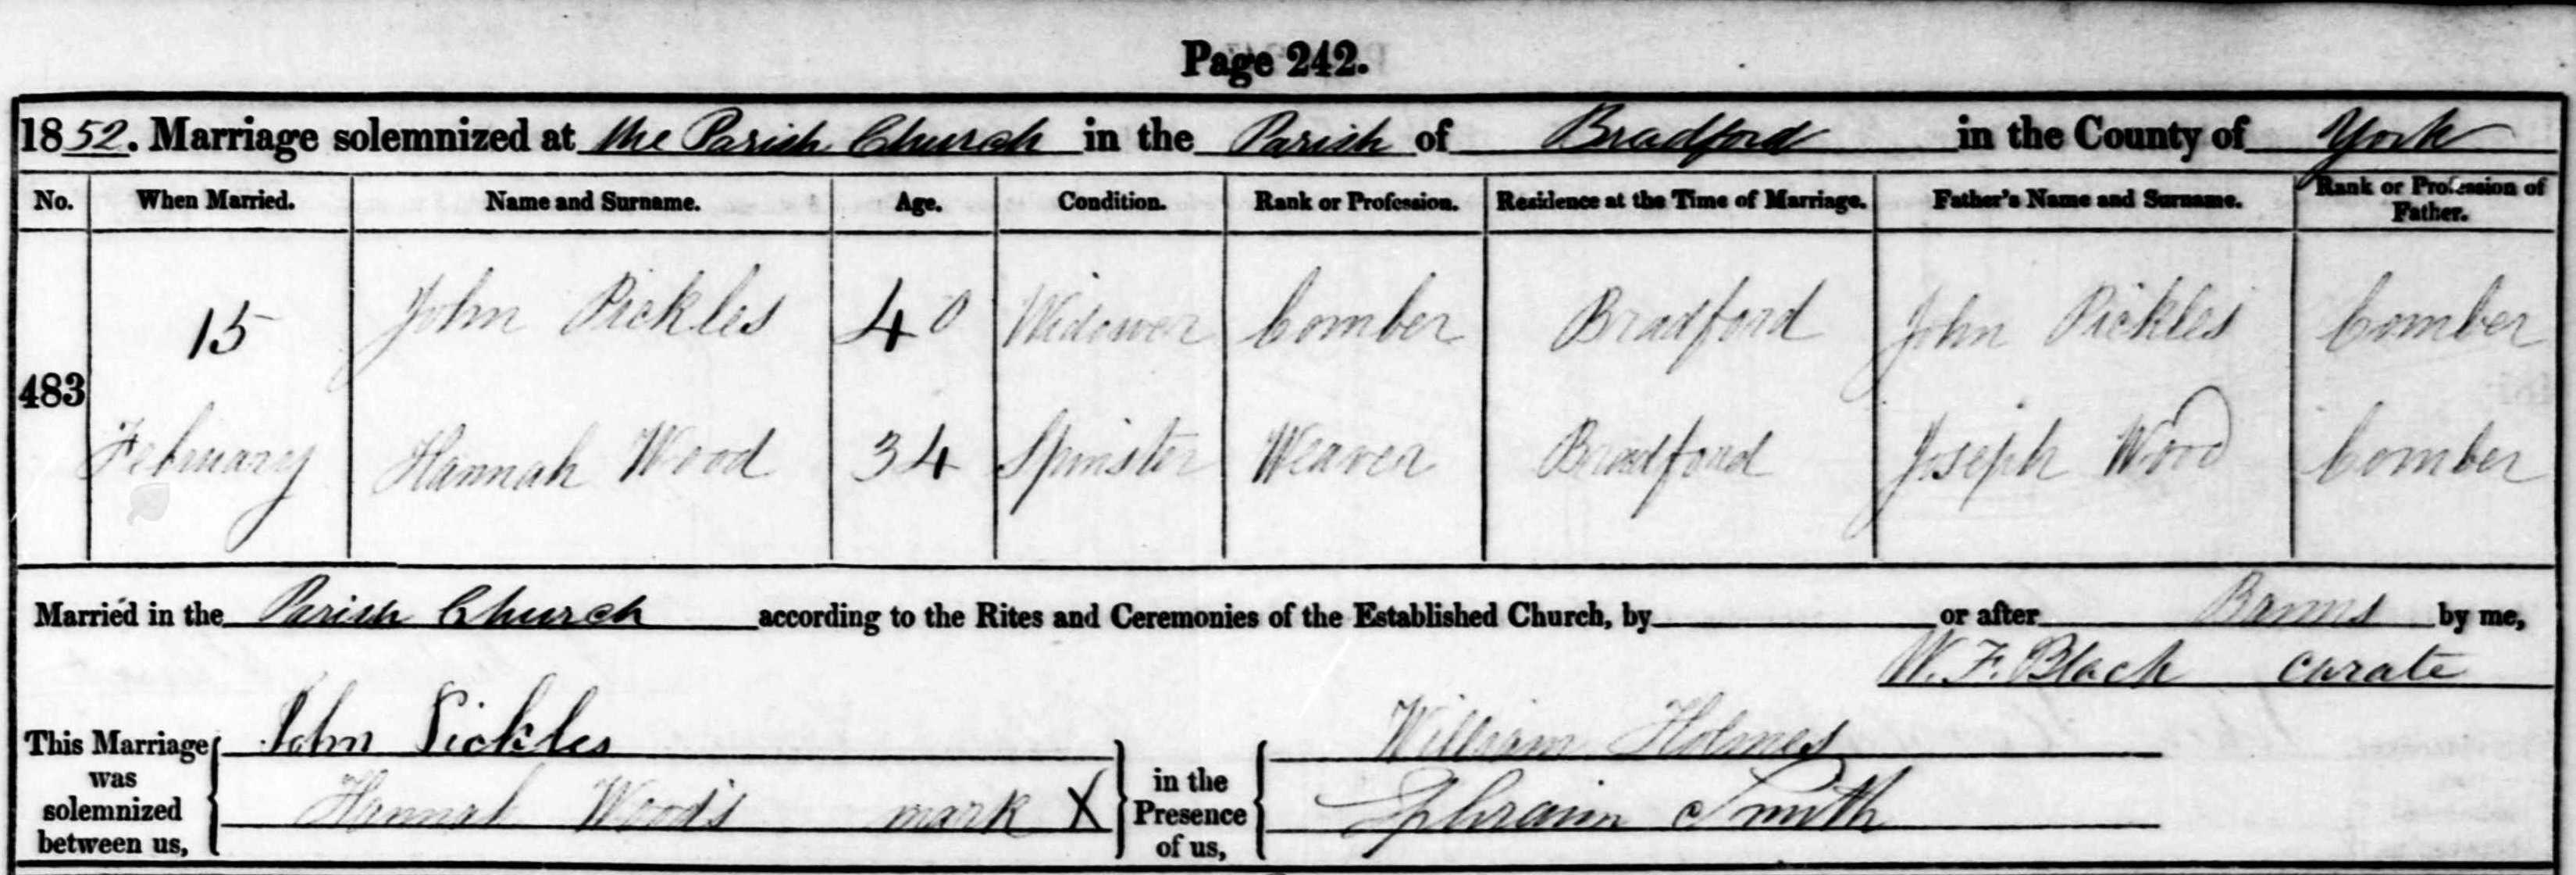 Page 242.
1852. Marriage solemnized at the Parish Church in the Parish of Bradford in the County of York
No. When Married. Name and Surname. Age. Condition. Rank or Profession. Residence at the Time of Marriage. Father's Name and Surname. Rank or Profession of Father.
15 John Pickles 40 Widower Comber Bradford John Pickles Comber
483
February Hannah Wood 34 Spinster Weaver Bradford Joseph Wood Comber
Married in the Parish Church according to the Rites and Ceremonies of the Established Church, by or after Banns by me,
W. F. Black Curate
This Marriage was solemnized between us, John Pickles in the Presence of us, William Holmes
Hannah Wood's mark X Ephraim Smith